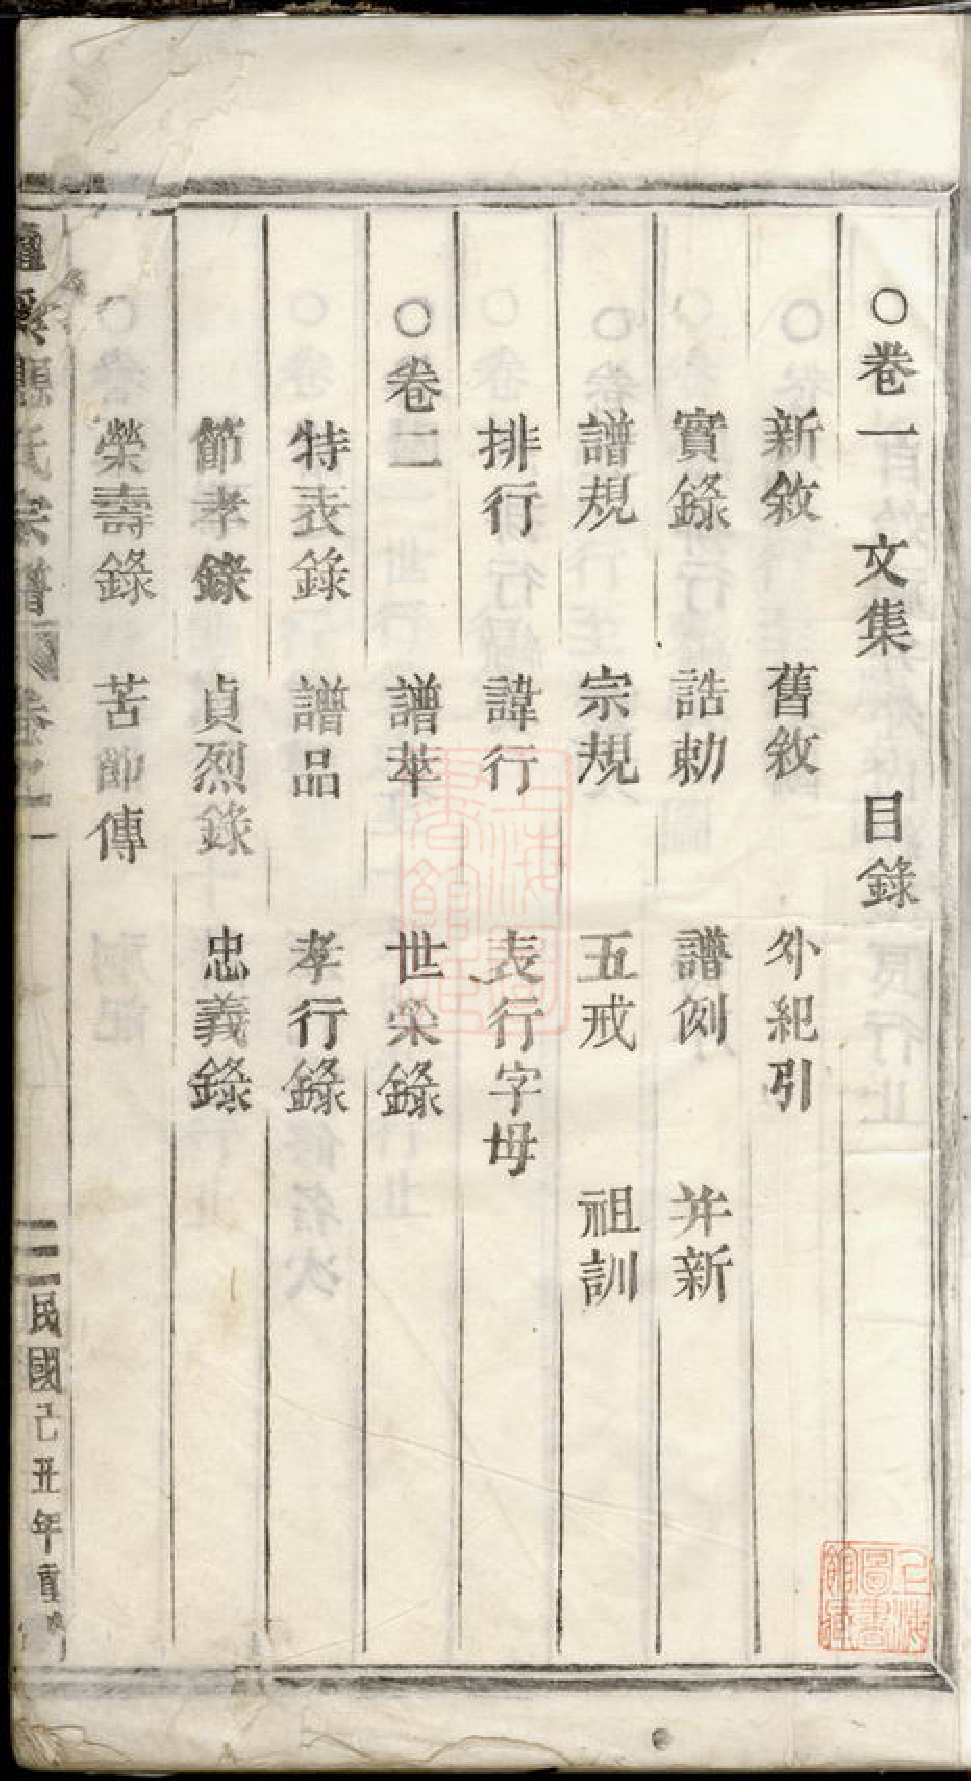 ○卷一 文集 目錄
新敘 舊敘 外紀引
實錄 誥勅 譜例 并新
譜規 宗規 五戒 祖訓
排行 諱行 表行字母
○卷二 譜華 世榮錄
特表錄 譜品 孝行錄
節孝錄 貞烈錄 忠義錄
榮壽錄 苦節傳
氏宗譜 卷之一 民國己丑年重
上海圖書館藏
上海圖書館藏